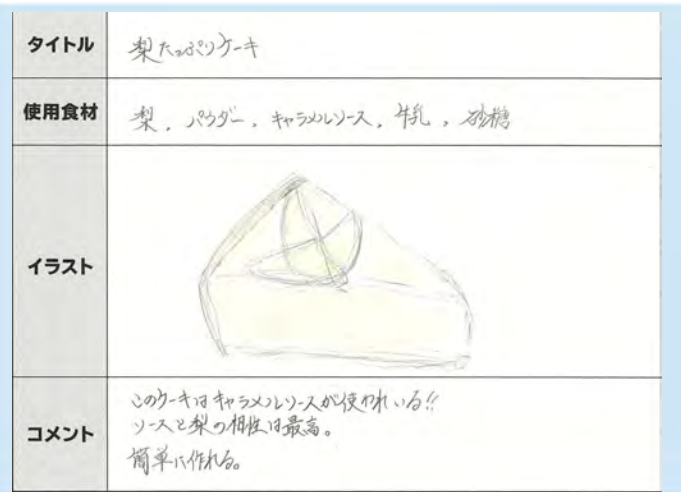 タイトル
梨たっぷりケーキ
使用食材
梨、パウダー、キャラメルソース、牛乳、砂糖
イラスト
コメント
このケーキはキャラメルソースが使われいる!!
ソースと梨の相性は最高。
簡単に作れる。